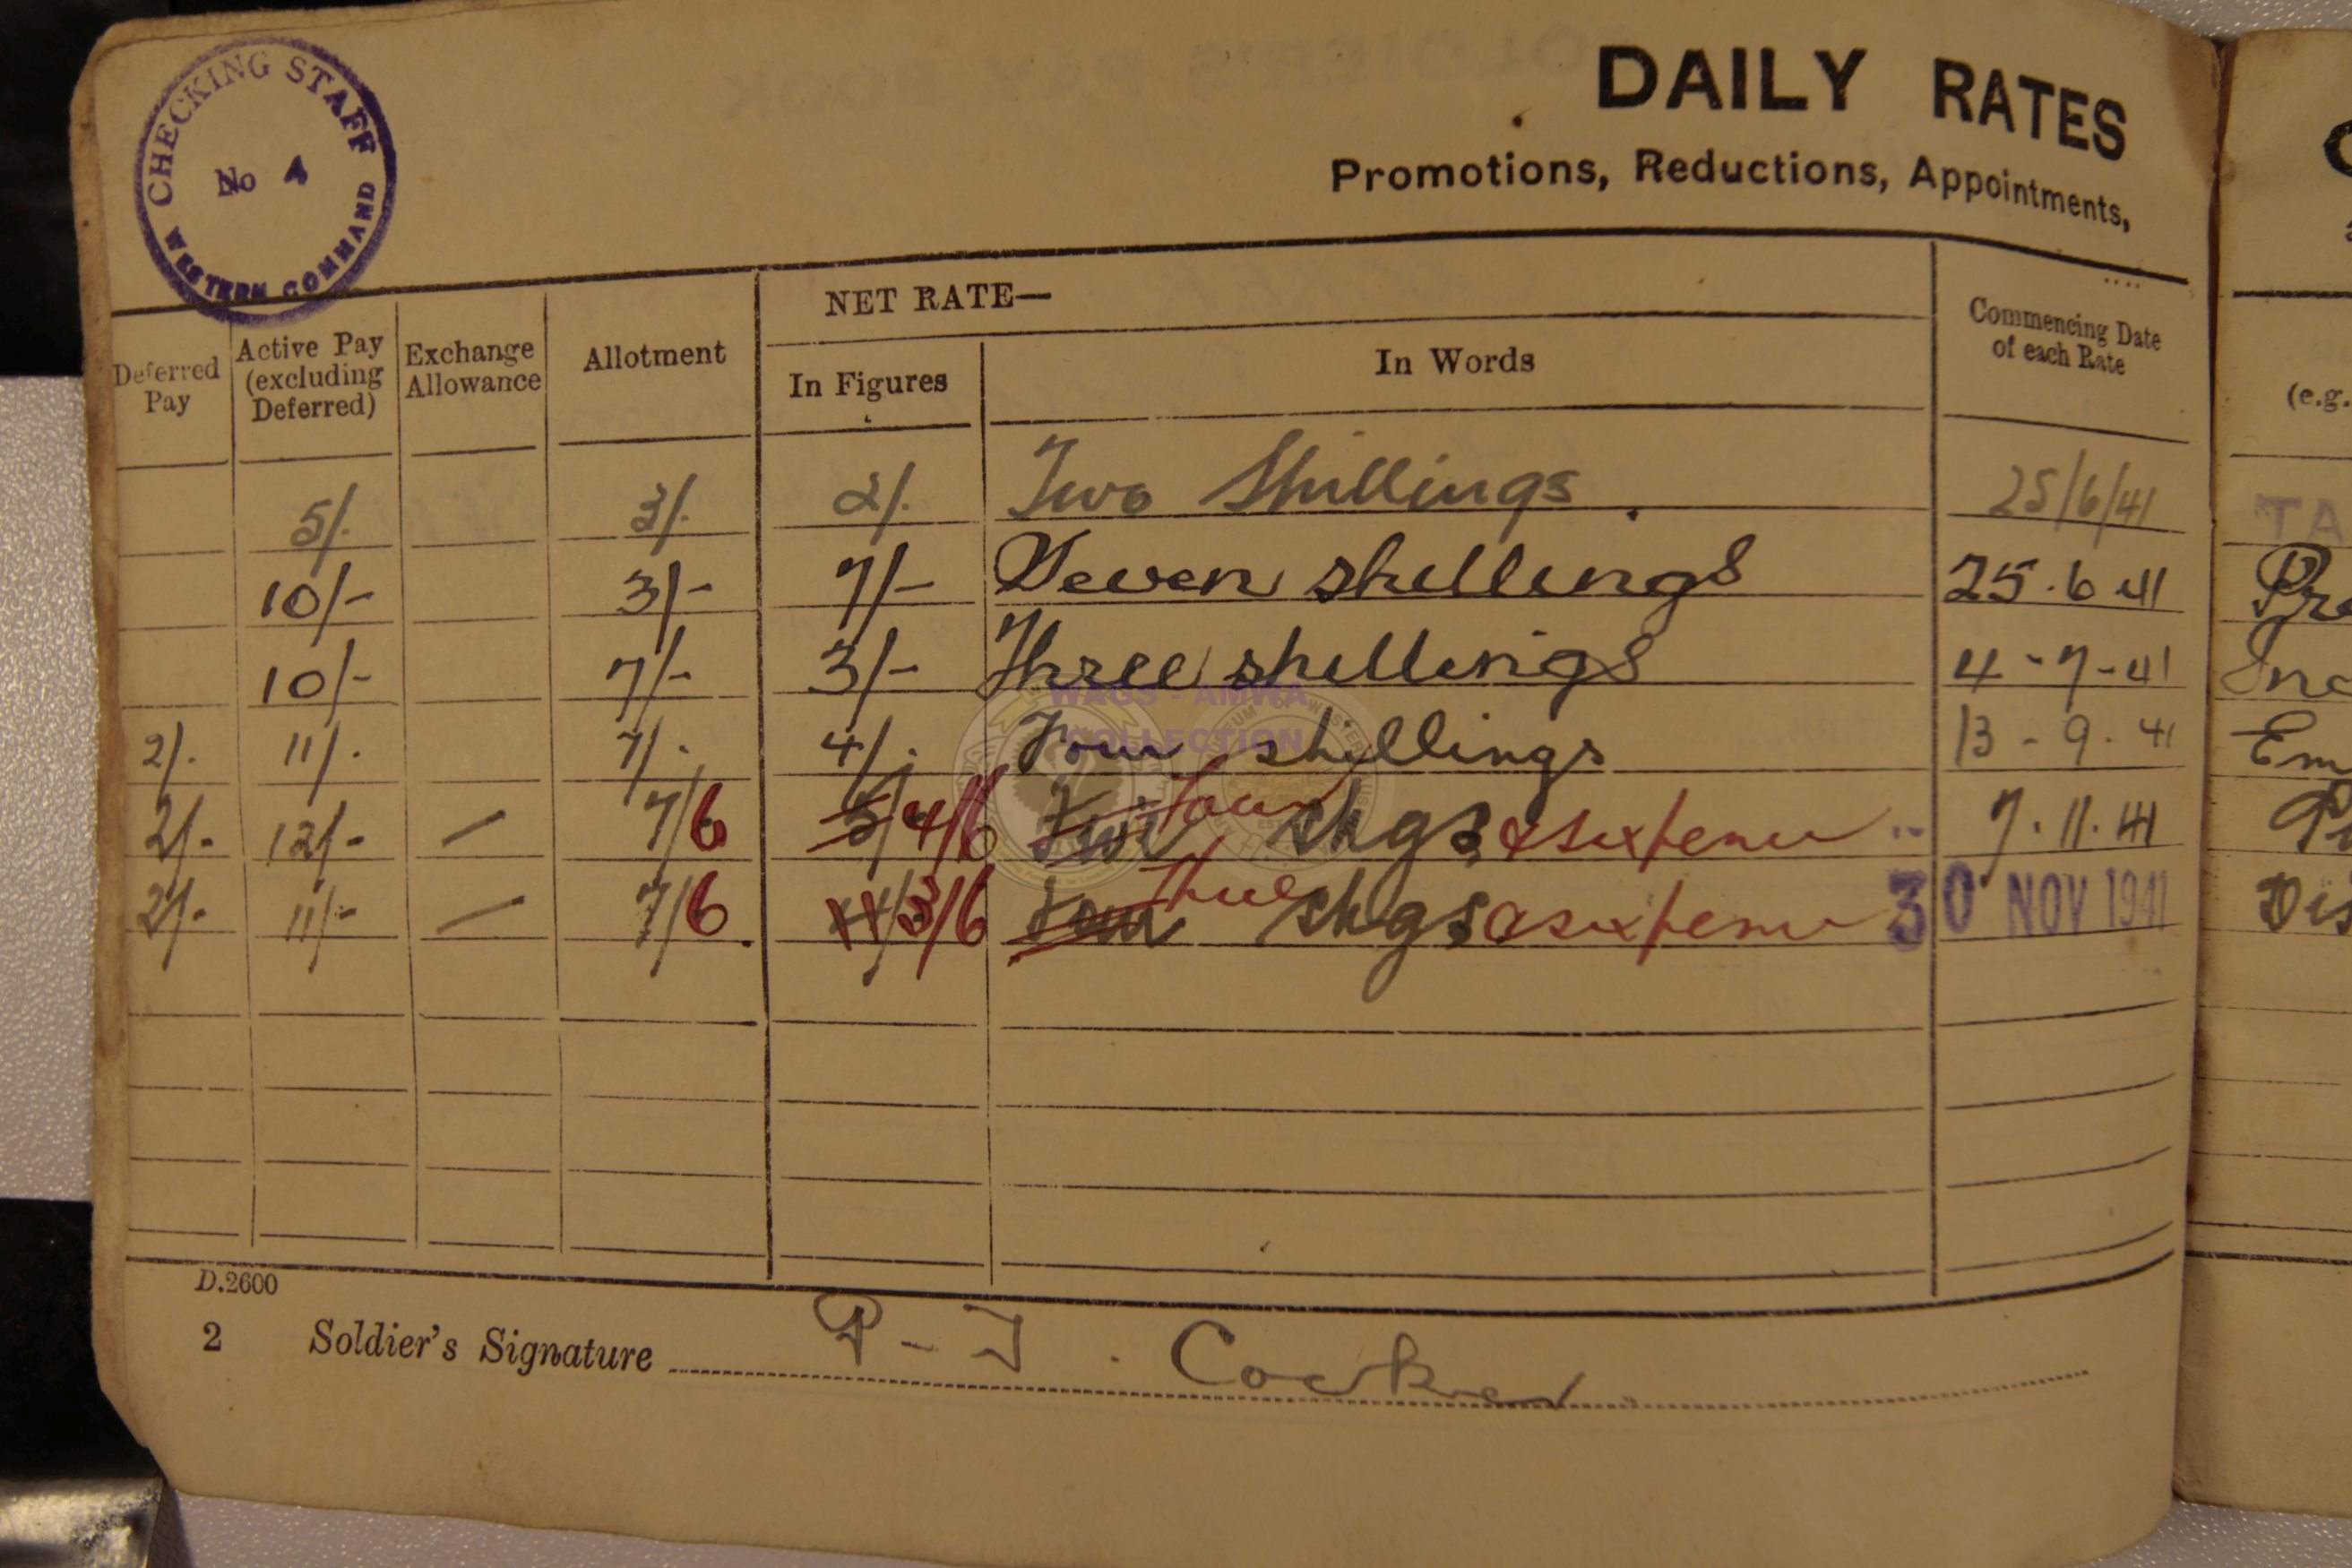 CHECKING STAFF
No 4
WESTERN COMMAND
DAILY RATES
Promotions, Reductions, Appointments,
Deferred Pay
Active Pay (excluding Deferred)
Exchange Allowance
Allotment
NET RATE—
In Figures
In Words
Commencing Date of each Rate
(e.g.
5/. 3/. 2/. Two Shillings. 25/6/41 TA
10/- 3/- 7/- Seven shillings 25.6.41 Pr
10/- 7/- 3/- Three shillings 4-7-41 Inc
2/. 11/. 7/. 4/. Four shillings 13-9-41 Em
2/- 12/- — 7/6 5/ 4/6 Five Four shgs & sixpence 7.11.41
2/- 11/- — 7/6 4/ 3/6 Four Three shgs & sixpence 30 NOV 1941 Dis
WAGS - AMWA
COLLECTION
D.2600
2 Soldier's Signature P-J. Cocker